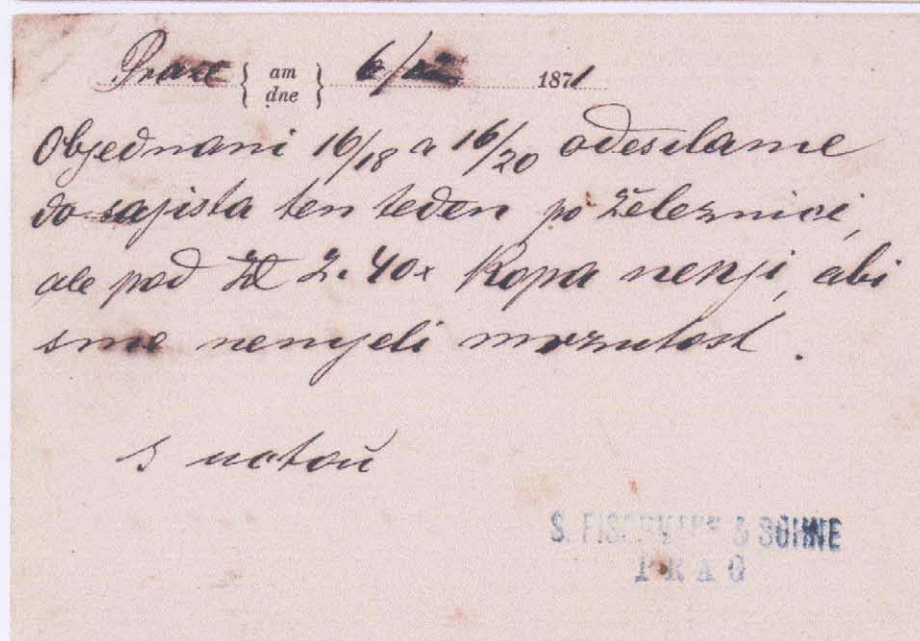 Praze { am dne } 6/ 1871
Objednani 16/18 a 16/20 odesilame
do sajista ten teden po železnici,
ale pod Zl 2.40x Kopa nenji, abi
sme nemjeli mrzutost.
S uctou
S. & SÖHNE
PRAG